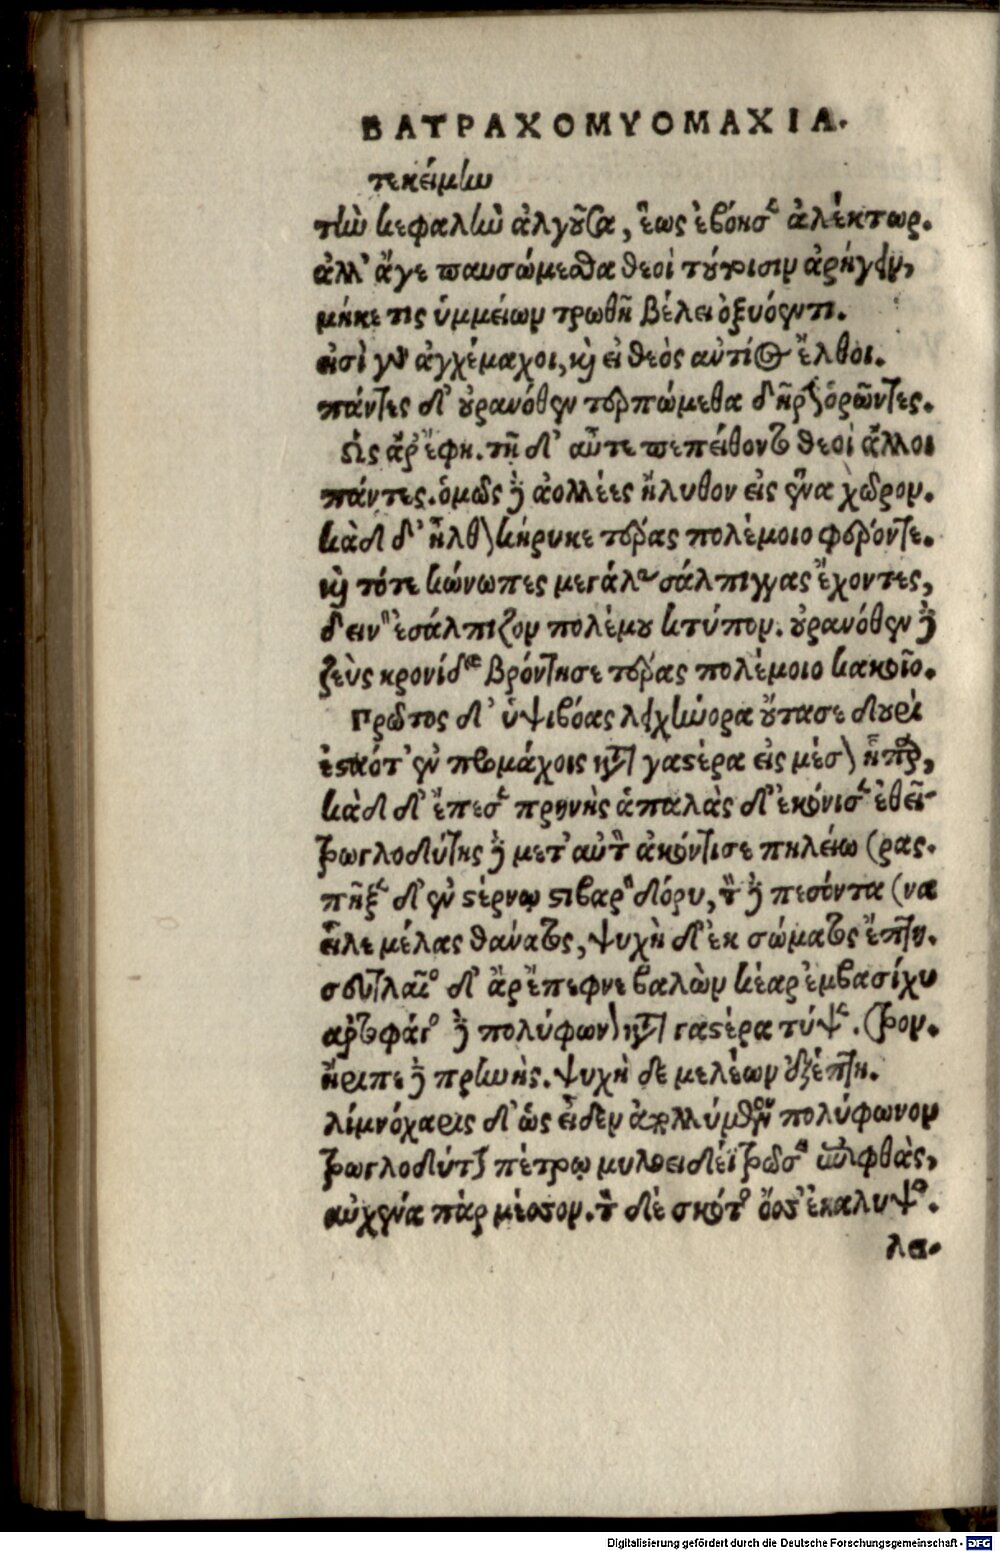 ΒΑΤΡΑΧΟΜΥΟΜΑΧΙΑ.
τεκείμην
τὴν κεφαλὴν ἀλγοῦσα, ἕως ἐβόησεν ἀλέκτωρ.
ἀλλ' ἄγε παυσώμεσθα θεοὶ τούτοισιν ἀρήγειν,
μήκε τις ὑμμείων τρωθῇ βέλει ὀξυόεντι.
εἰσὶ γὰρ ἀγχέμαχοι, καὶ εἰ θεὸς αὐτίος ἔλθοι.
πάντες δ' οὐρανόθεν τερπώμεθα δῆριν ὁρῶντες.
Ὣς ἄρ' ἔφη. τῇ δ' αὖτε πεπείθοντο θεοὶ ἄλλοι
πάντες. ὁμῶς δὲ ἀολλέες ἤλυθον εἰς ἕνα χῶρον.
κὰδ δ' ἦλθον κήρυκε τέρας πολέμοιο φέροντε.
καὶ τότε κώνωπες μεγάλας σάλπιγγας ἔχοντες,
δεινὸν ἐσάλπιζον πολέμου κτύπον. οὐρανόθεν δὲ
ζεὺς κρονίδης βρόντησε τέρας πολέμοιο κακοῖο.
Πρῶτος δ' ὑψιβόας λειχήνορα οὔτασε δουρὶ
ἑσταότ' ἐν προμάχοις κατὰ γαστέρα εἰς μέσον ἧπαρ,
κὰδ δ' ἔπεσεν πρηνὴς ἁπαλὰς δ' ἐκόνισεν ἐθεί-
τρωγλοδύτης δὲ μετ' αὐτὸν ἀκόντισε πηλείω (ρας.
πῆξεν δ' ἐν στέρνῳ στιβαρὸν δόρυ, τὸν δὲ πεσόντα (να
εἷλε μέλας θάνατος, ψυχὴ δ' ἐκ σώματος ἔπτη.
σευτλαῖος δ' ἄρ' ἔπεφνε βαλὼν κέαρ ἐμβασίχυ
ἀρτοφάγος δὲ πολύφωνον κατὰ γαστέρα τύψε. (τρον.
ἤριπε δὲ πρηνὴς. ψυχὴ δὲ μελέων ἐξέπτη.
λίμνόχαρις δ' ὡς εἶδεν ἀπολλύμενον πολύφωνον
τρωγλοδύτην πέτρῳ μυλοειδέϊ τρῶσεν ἐπιφθὰς,
αὐχένα πὰρ μέσσον. τὸν δὲ σκότος ὄσσε ἐκάλυψε.
λα.